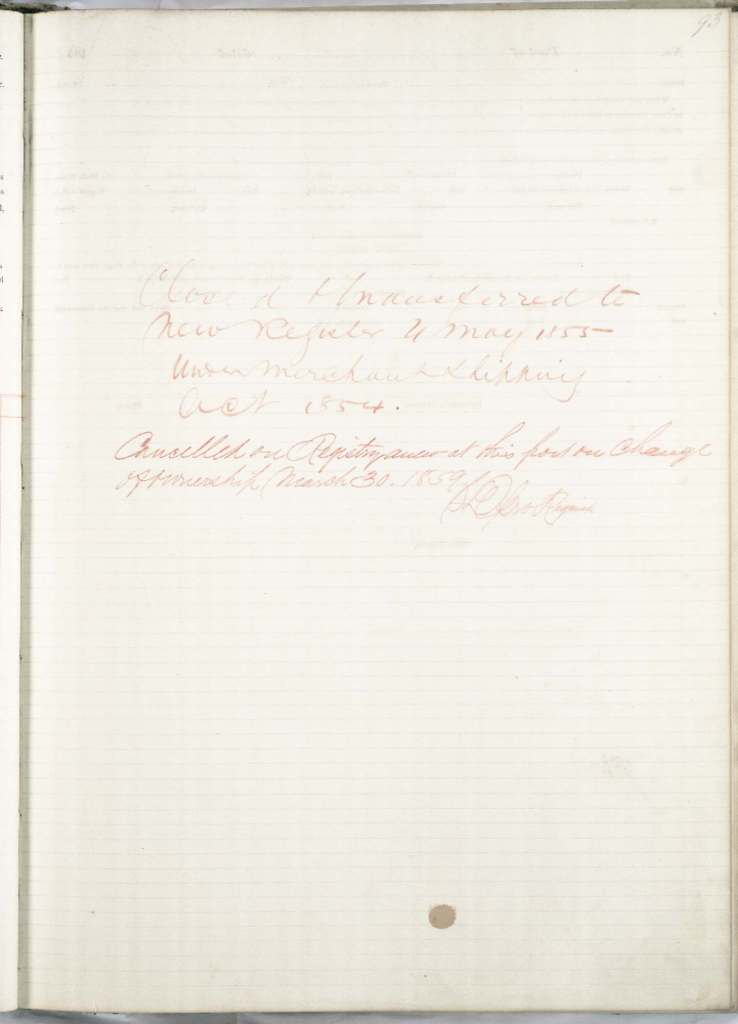 93
Closed & Transferred to
New Register 4 May 1855
Under Merchant Shipping
Act 1854.
Cancelled on Registry anew at this port on Change
of Ownership, March 30. 1859